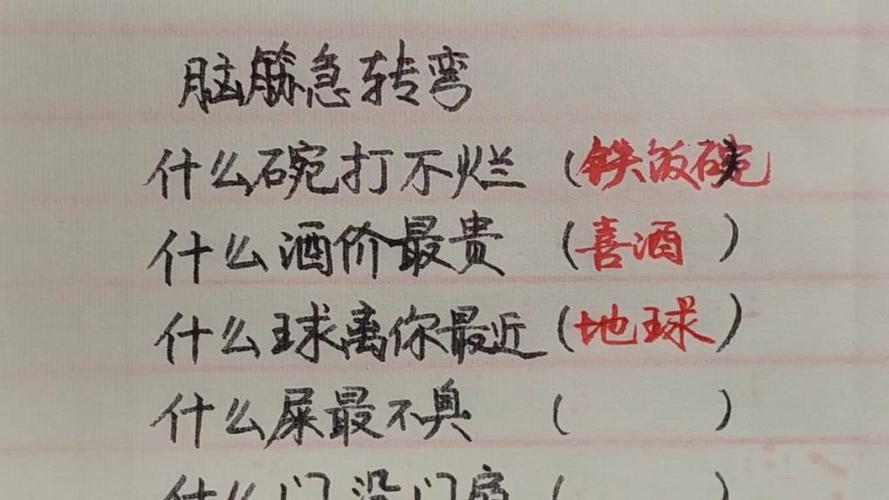 脑筋急转弯
什么碗打不烂（铁饭碗
什么酒价最贵（喜酒）
什么球离你最近（地球）
什么屎最不臭（ ）
什么门没门扇（ ）